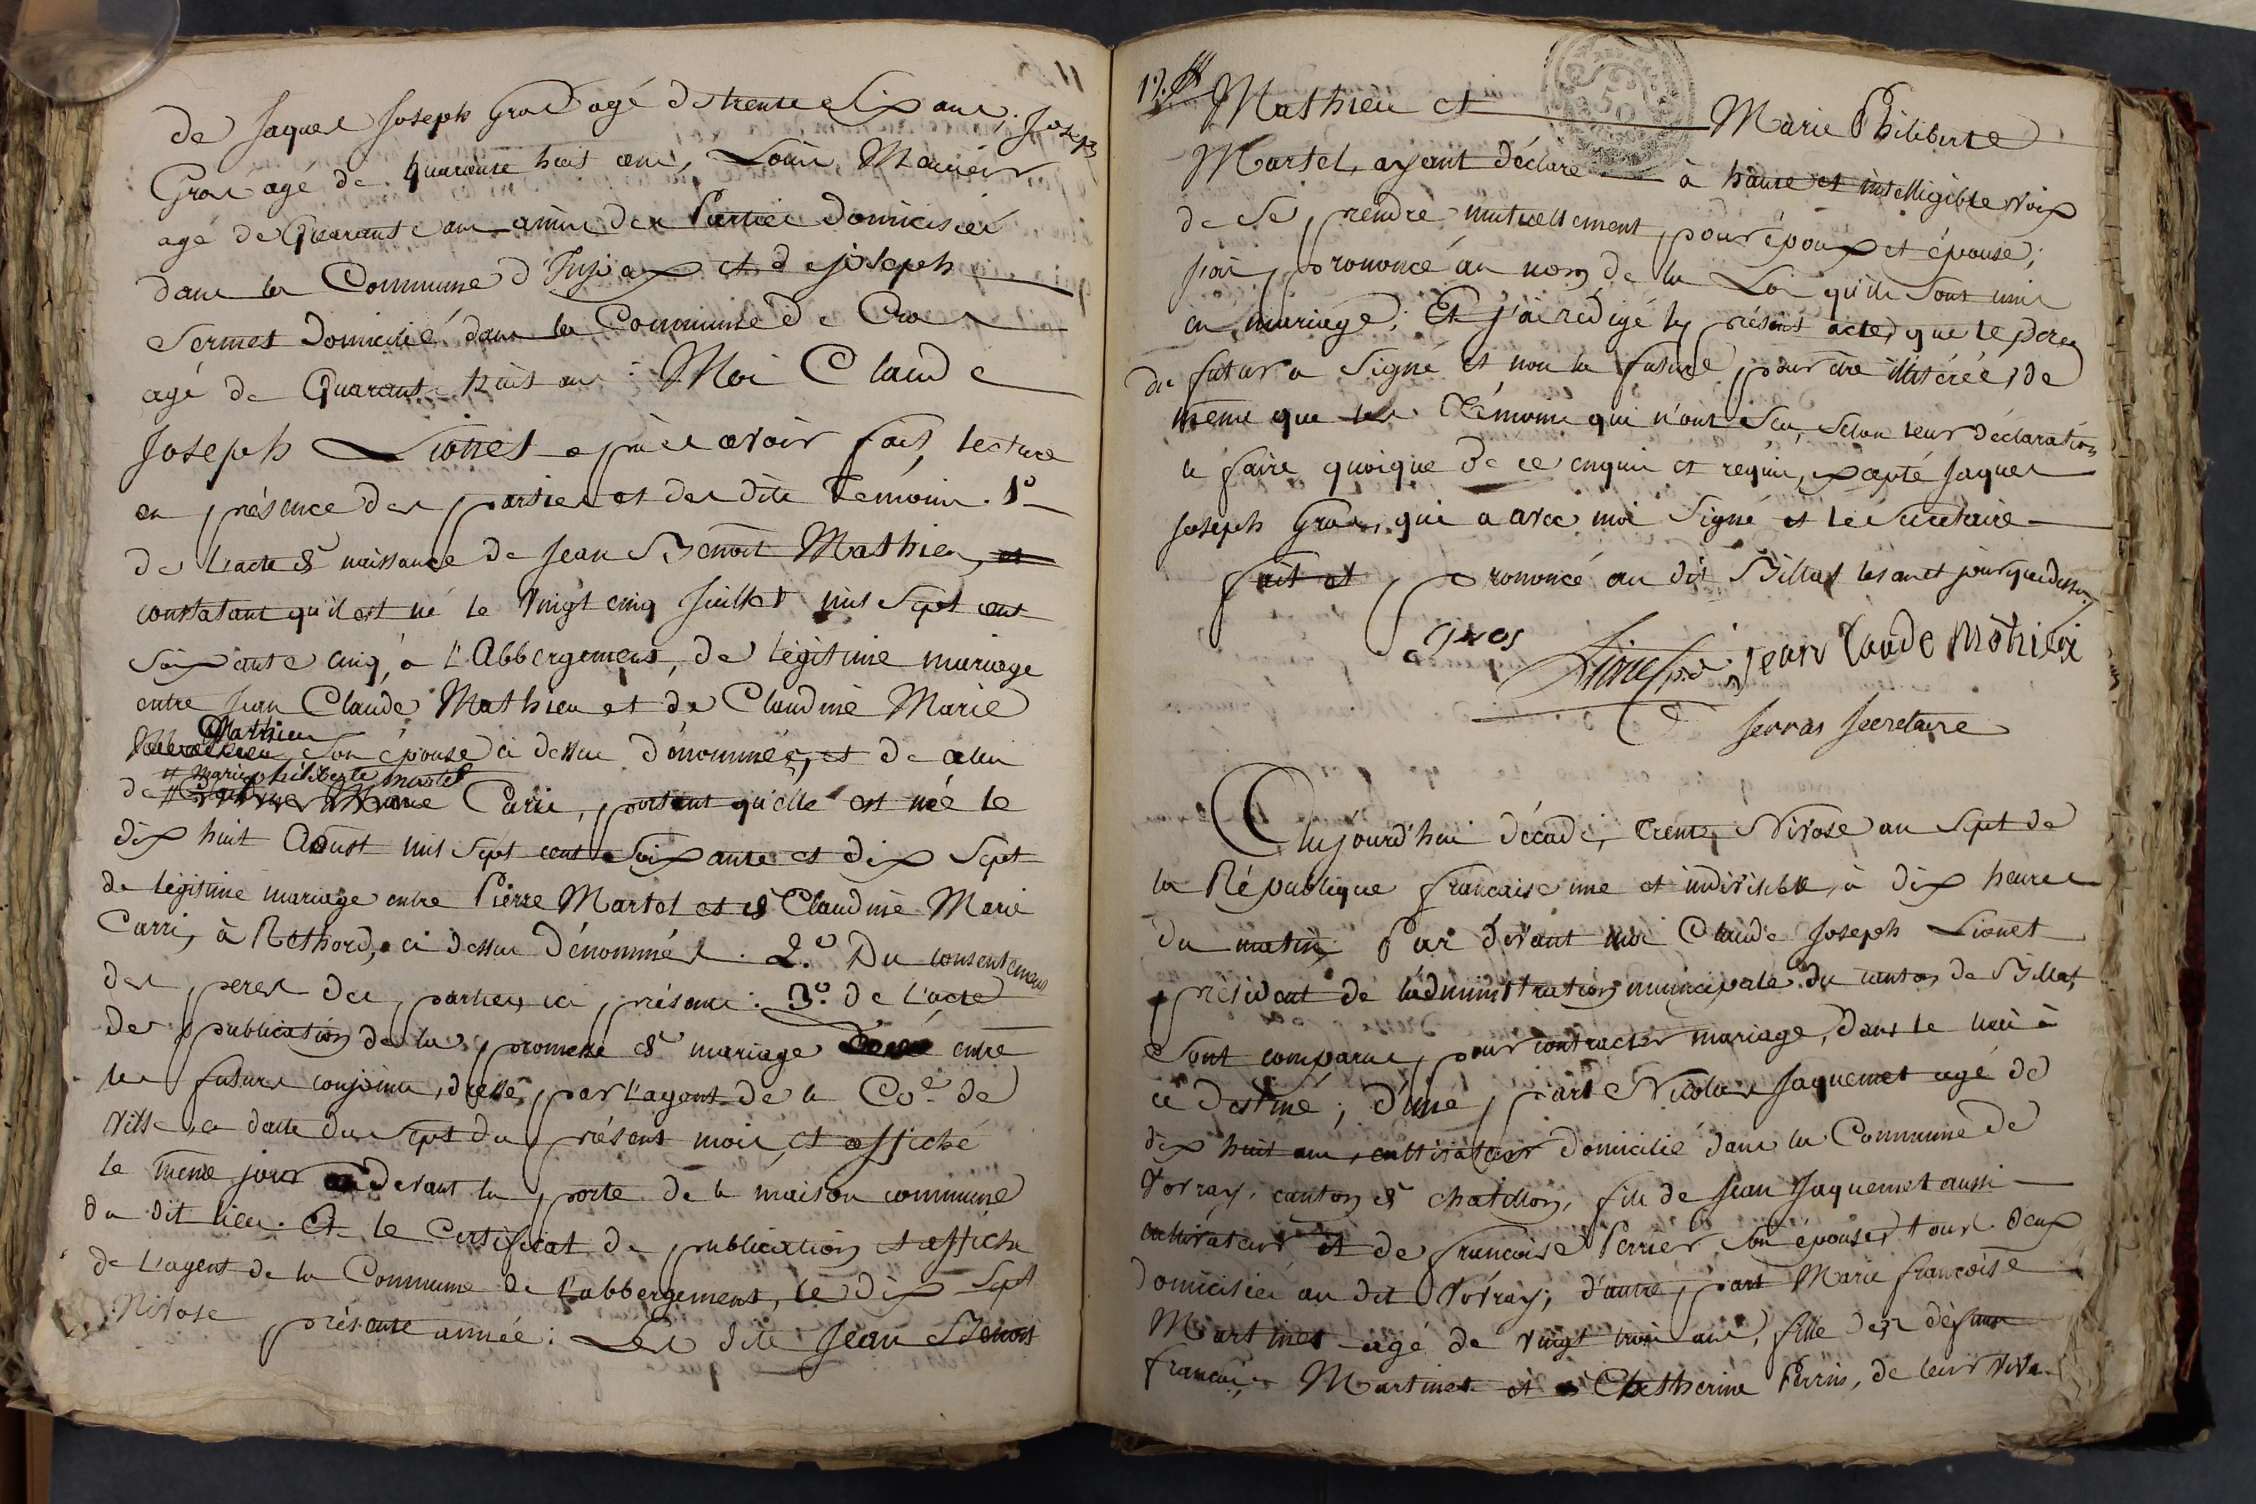 de Jaques Joseph Gros agé de trente Six ans; Joseph
Gros agé de quarante huit ans, Louis Maurier
agé de Quarante ans amis des Parties Domiciliés
dans la Commune d'Injoux et de joseph
Sermet Domicilié dans la Commune de Cras
agé de Quarante huit ans : Moi Claude
Joseph Lionet après avoir fait lecture
en présence des parties et des dits Témoins. 1°
de L'acte de naissance de Jean Benoit Mathieu, et
constatant qu'il est né le vingt cinq Juillet mil Sept cent
Soixante cinq, à L'Abbergement, de légitime mariage
entre Jean Claude Mathieu et de Claudine Marie
Mathieu
Son épouse ci dessus dénommés, et de celui
// Marie philiberte martel
de // Claudine Marie Carri, portant qu'elle est née le
dix huit Aoust mil Sept cent Soixante et dix Sept
de légitime mariage entre Pierre Martel et de Claudine Marie
Carri, à Rethord, ci dessus Dénommés. 2.° Du consentement
des peres des parties, ici présents : 3.° de L'acte
de publication de la promesse de mariage entre
les futurs conjoints, dressé par L'agent de la Co.e de
ville en date du Sept du présent mois, et affiché
le même jour devant la porte de la maison commune
du dit lieu. Et le Certificat de publication et affiche
de L'agent de la Commune de L'abbergement, le dix Sept
Nivose présente année : Les dits Jean Benoit
Mathieu et Marie Philiberte
Martel, ayant déclaré à haute et intelligible voix
de Se prendre mutuellement pour époux et épouse;
j'ai prononcé au nom de la Loi qu'ils Sont unis
en mariage; Et j'ai rédigé le présent acte, que le pere
du futur a Signé et non la future pour être illiterée, de
même que les Témoins qui n'ont Scu, Selon leur déclaration
le faire quoique de ce enquis et requis, excepté Jaques
Joseph Gros, qui a avec moi Signé et le Secretaire
fait et prononcé au dit Billat les an et jour que dessus
gros
Lionet p.dt jean Claude Mathieu
Serras Secretaire
Aujourd'hui décadi, trente Nivose an Sept de
la République francaise une et indivisible, à dix heures
du matin Par devant moi Claude Joseph Lionet
président de l'administration municipale du canton de Billat,
Sont comparus, pour contracter mariage, dans le lieu à
ce destiné; d'une part Nicolas Jaquemet agé de
dix huit ans, cultivateur domicilié dans la Commune de
Vovray, canton de chatillon, fils de Jean Jaquemet aussi
cultivateur et de francoise Perrier Son épouse, tous deux
Domiciliés au dit Vovray; d'autre part Marie francoise
Martinet agé de vingt trois ans, fille des défunts
francois Martinet et de Chatherine Perrin, de leur viva-